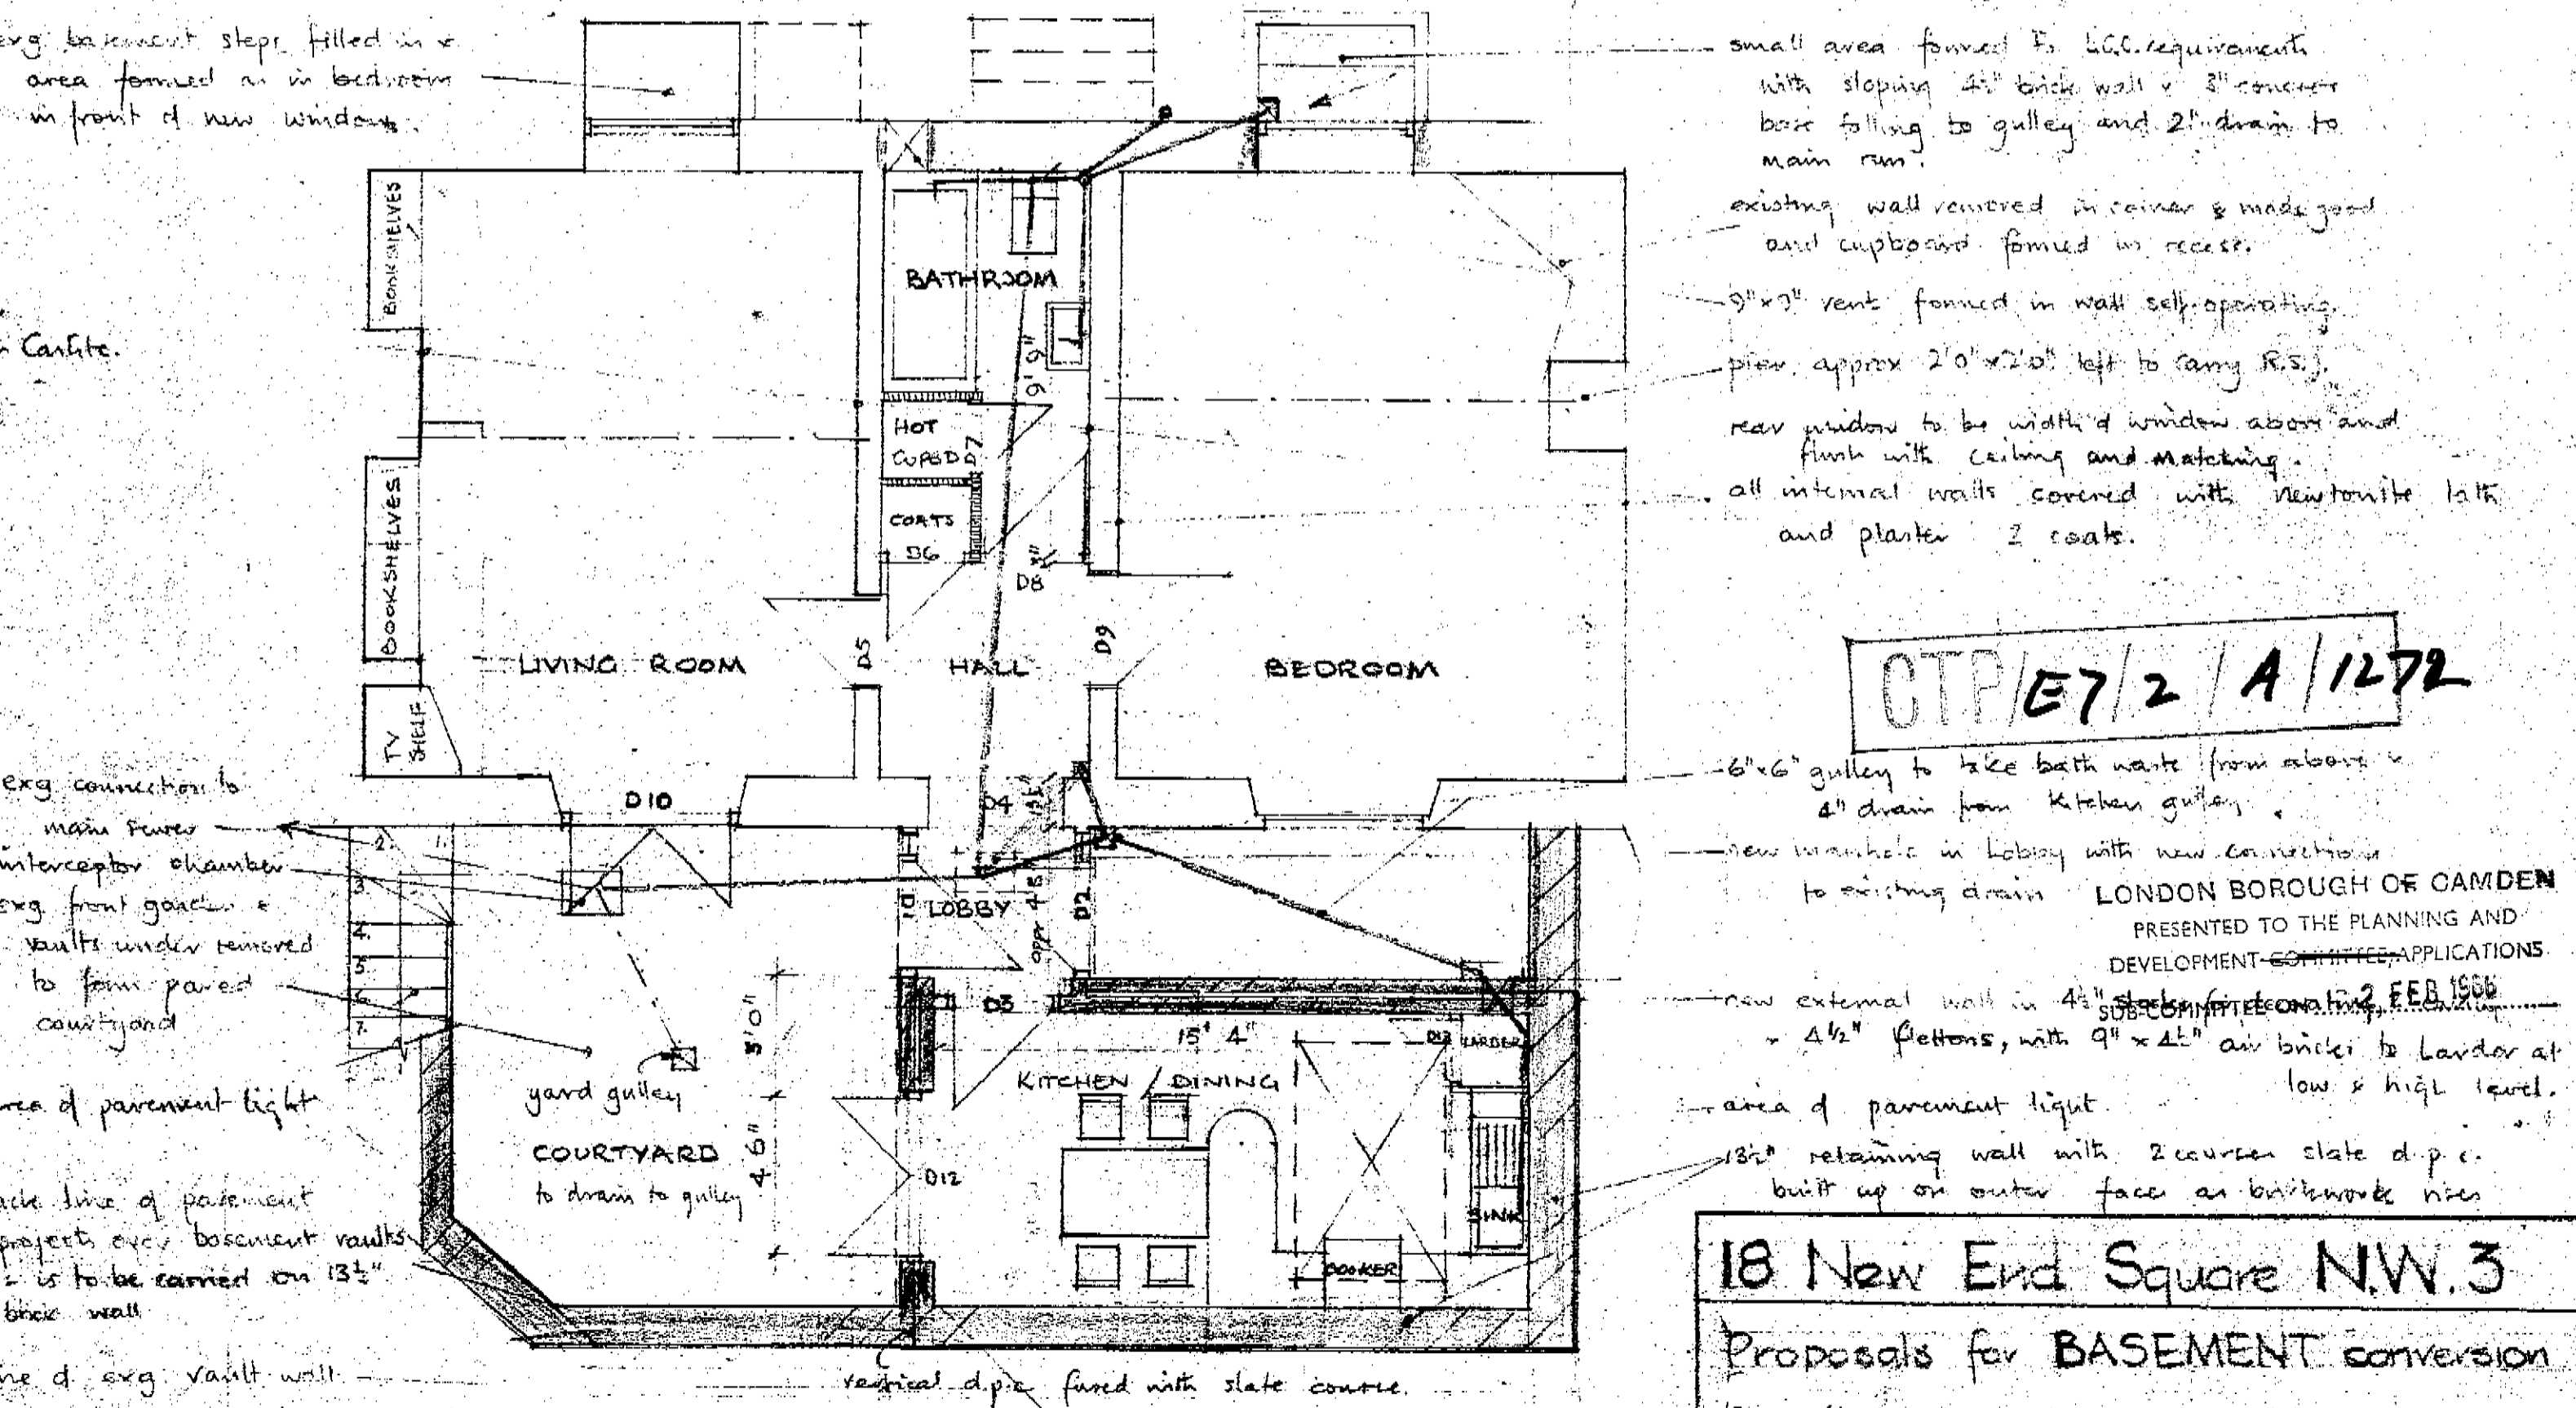 exg basement steps filled in &
area formed as in bedroom
in front of new window.
Carlite.
exg connection to
main sewer
interceptor chamber
exg front garden &
vaults under removed
to form paved
courtyard
area of pavement light
back line of pavement
projects over basement vaults
is to be carried on 13½"
brick wall
line of exg vault wall
BOOKSHELVES
BOOKSHELVES
TV SHELF
LIVING ROOM
BATHROOM
9' 9"
HOT
CUPBD D7
COATS
D6
D8
D5
HALL
D9
BEDROOM
D10
D4
1.
2.
3.
4.
5.
6.
7.
D1
LOBBY
D2
D3
5'0"
15' 4"
LARDER
KITCHEN / DINING
yard gulley
COURTYARD
to drain to gulley
4'6"
D12
SINK
COOKER
vertical d.p.c. fused with slate course.
small area formed to L.C.C. requirements
with sloping 4½" brick wall & 3" concrete
base falling to gulley and 2" drain to
main run.
existing wall removed in corner & made good
and cupboard formed in recess.
9"x9" vent formed in wall self-operating.
pier approx 2'0"x2'0" left to carry R.S.J.
rear window to be width of window above and
flush with ceiling and matching.
all internal walls covered with newtonite lath
and plaster 2 coats.
CTP/E7/2/A/1272
6"x6" gulley to take bath waste from above &
4" drain from kitchen gulley.
new manhole in Lobby with new connections
to existing drain
LONDON BOROUGH OF CAMDEN
PRESENTED TO THE PLANNING AND
DEVELOPMENT COMMITTEE, APPLICATIONS
SUB-COMMITTEE ON 2 FEB 1966
new external wall in 4½" stocks for decorating
4½" flettons, with 9" x 4½" air bricks to Larder at
low & high level.
area of pavement light.
13½" retaining wall with 2 courses slate d.p.c.
built up on outer face as brickwork rises
18 New End Square N.W.3
Proposals for BASEMENT conversion